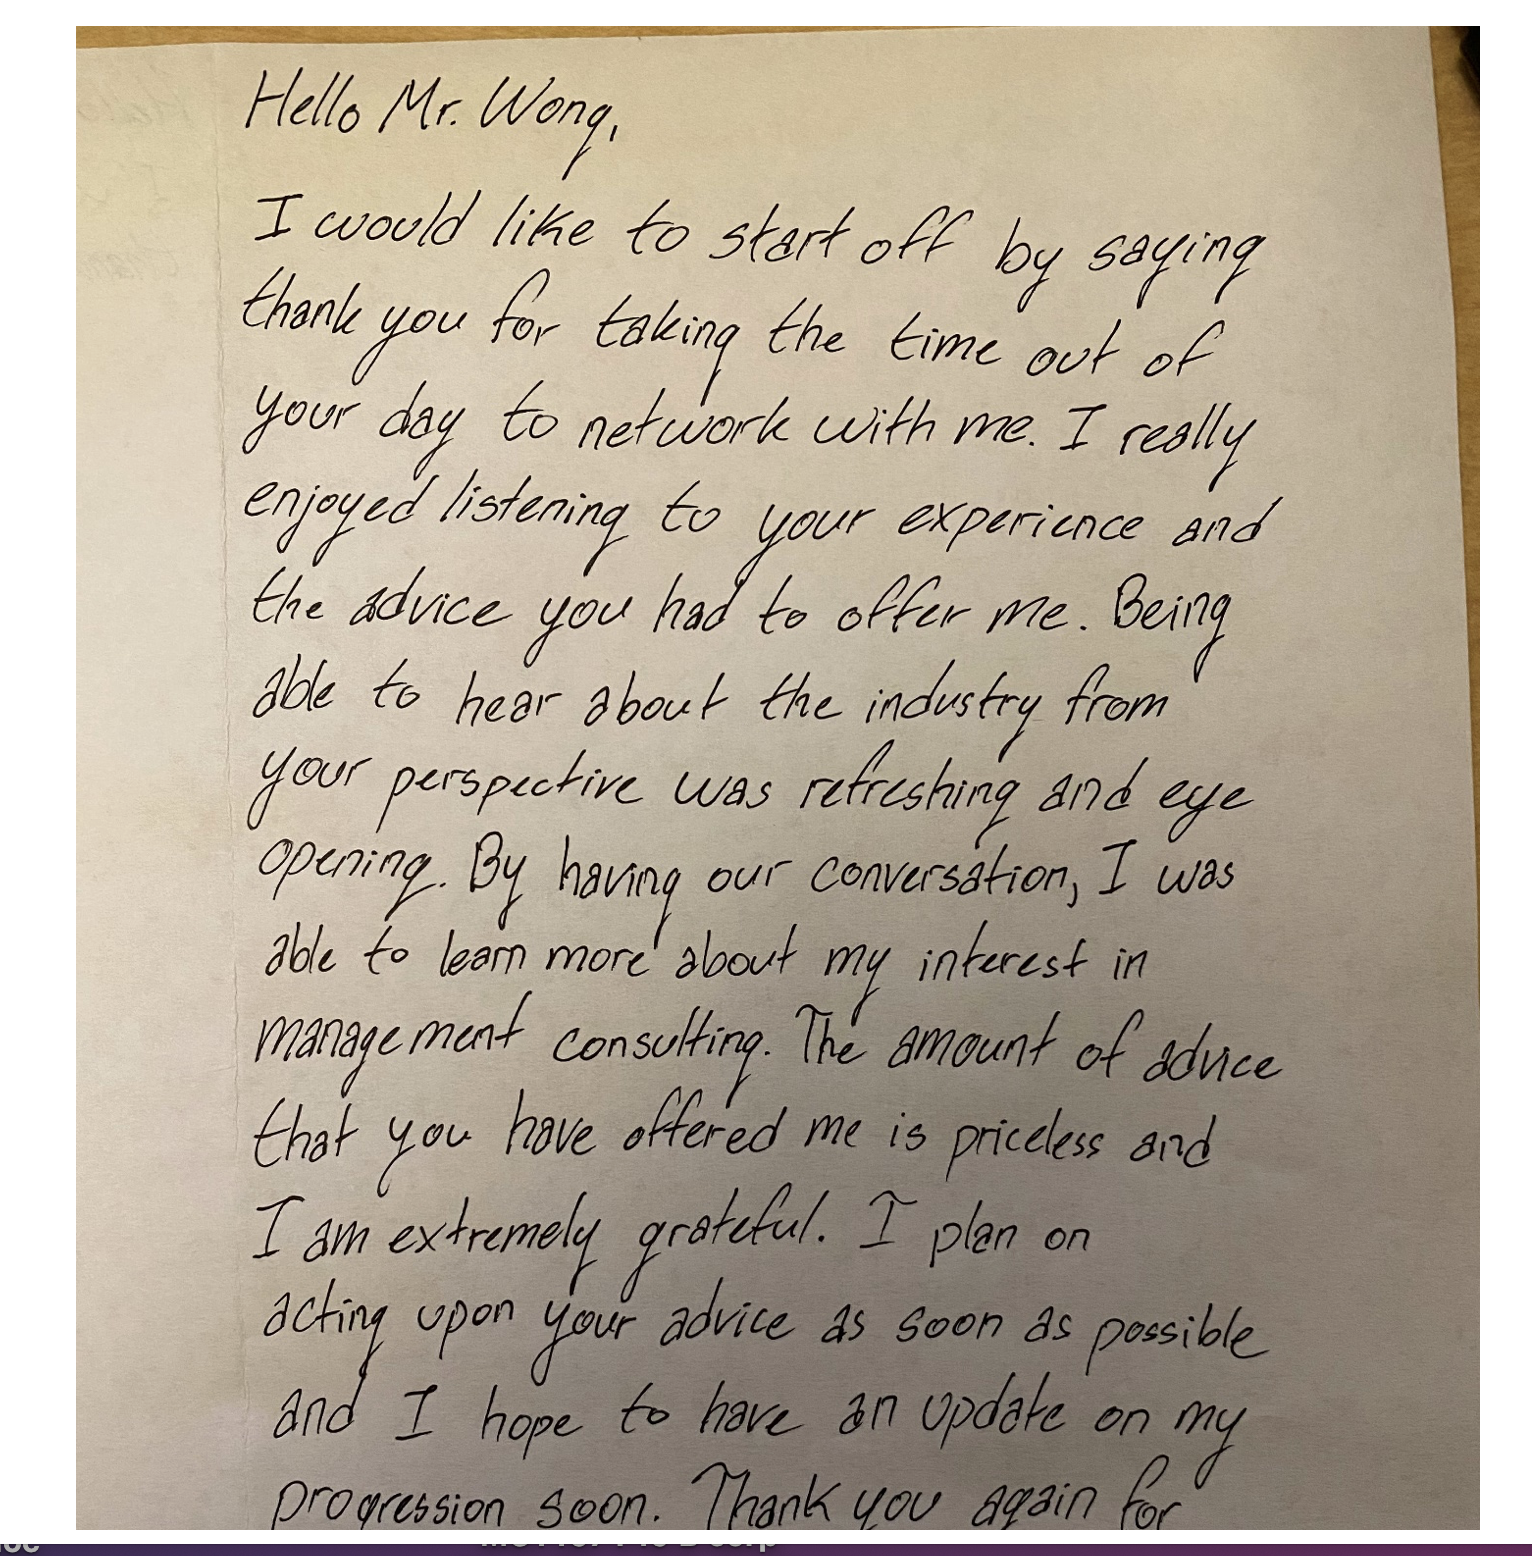 Hello Mr. Wong,
I would like to start off by saying
thank you for taking the time out of
your day to network with me. I really
enjoyed listening to your experience and
the advice you had to offer me. Being
able to hear about the industry from
your perspective was refreshing and eye
opening. By having our conversation, I was
able to learn more about my interest in
management consulting. The amount of advice
that you have offered me is priceless and
I am extremely grateful. I plan on
acting upon your advice as soon as possible
and I hope to have an update on my
progression soon. Thank you again for